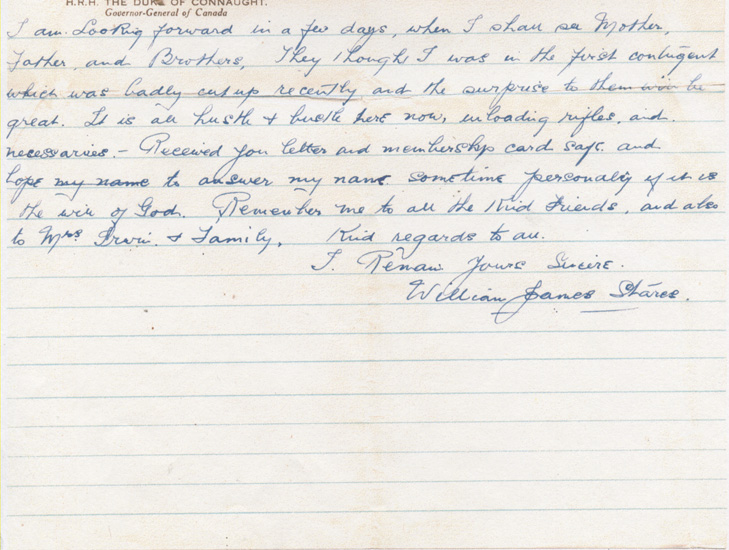 H.R.H. THE DUKE OF CONNAUGHT.
Governor-General of Canada
I am Looking forward in a few days, when I shall see Mother,
Father, and Brothers, They thought I was in the first contingent
which was badly cut up recently and the surprise to them will be
great. It is all hustle & bustle here now, unloading rifles, and
necessaries. - Received you letter and membership card safe and
hope my name to answer my name sometime personally if it is
the will of God. Remember me to all the Kind Friends, and also
to Mrs Irwin & Family. Kind regards to all.
I. Remain Yours Sincere.
William James Stares.